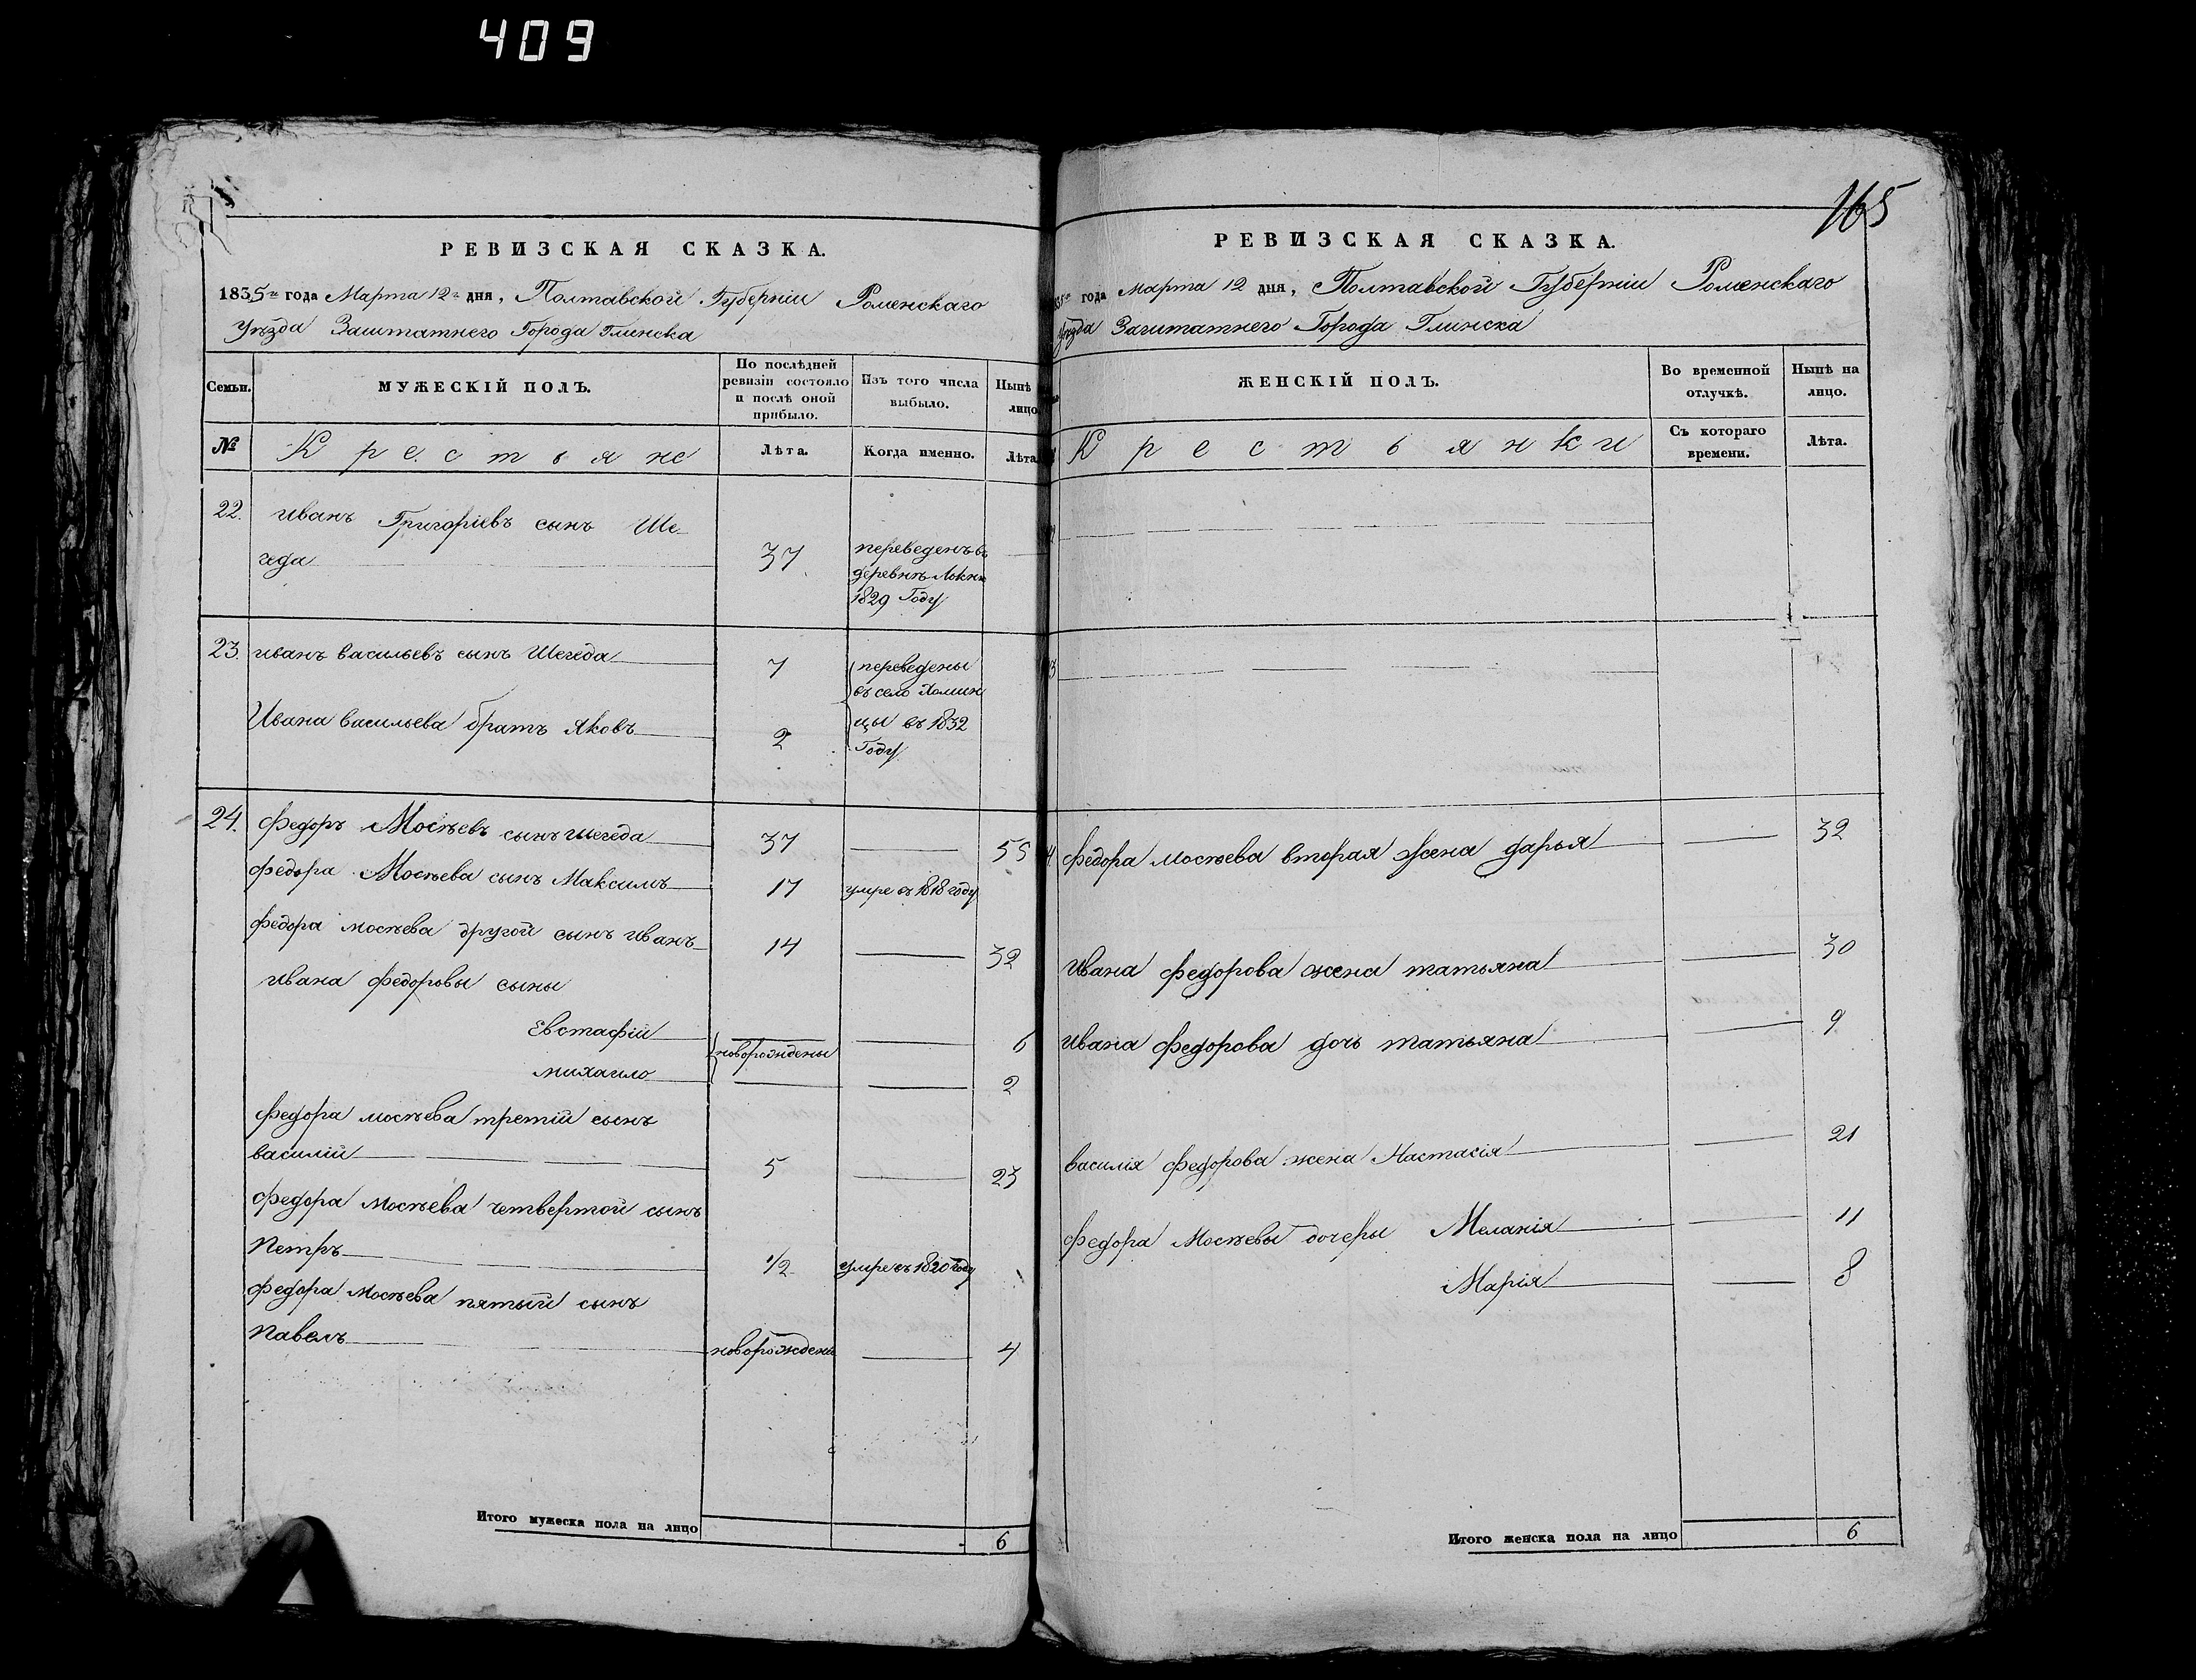 409
РЕВИЗСКАЯ СКАЗКА.
1835го года Марта 12го дня, Полтавской Губерніи Роменскаго
Уѣзда Заштатнего Города Глинска
Семьи.
МУЖЕСКІЙ ПОЛЪ.
По послѣдней
ревизіи состояло
и послѣ оной
прибыло.
Изъ того числа
выбыло.
Нынѣ
лицо
№
Крестьяне
Лѣта.
Когда именно.
Лѣта
22. иванъ Григоріевъ сынъ Ше-
геда 37 переведенъ въ
деревнѣ Локнѣ
1829 Году
23. иванъ васильевъ сынъ Шегеда 7 переведены
въ село Хомин
Ивана васильева братъ Яковъ 2 цы въ 1832
Году
24. федоръ Мосѣевъ сынъ шегеда 37 55
федора Мосѣева сынъ Максимъ 17 умре въ 1818 году
федора мосѣева другой сынъ иванъ 14 32
ивана федоровы сыны
Евстафій 6
новорождены
михаило 2
федора мосѣева третій сынъ
василій 5 23
федора Мосѣева четвертой сынъ
Петръ 1/2 умре въ 1820 году
федора Мосѣева пятый сынъ
Павелъ новорожденъ 4
Итого мужеска пола на лицо 6
165
РЕВИЗСКАЯ СКАЗКА.
года Марта 12 дня, Полтавской Губерніи Роменскаго
Уѣзда Заштатнего Города Глинска
ЖЕНСКІЙ ПОЛЪ.
Во временной
отлучкѣ.
Нынѣ на
лицо.
Крестьянки
Съ котораго
времени.
Лѣта.
федора мосѣева вторая жена дарья 32
ивана федорова жена татьяна 30
ивана федорова дочь татьяна 9
василія федорова жена Настасія 21
федора Мосѣевы дочеры Меланія 11
Марія 8
Итого женска пола на лицо 6